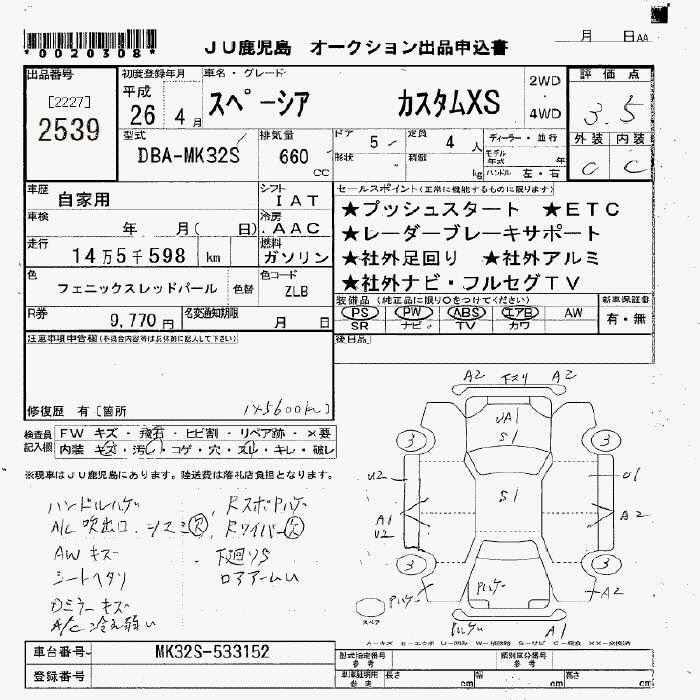 *0020308*
JU鹿児島 オークション出品申込書
月 日AA
出品番号
[2227]
2539
初度登録年月
平成
26 4月
車名・グレード
スペーシア カスタムXS
2WD
4WD
評価点
3.5
外装 内装
C C
型式
DBA-MK32S
排気量
660 CC
ドア 5
形状
定員 4 人
積載 kg
ディーラー・並行
モデル年式 年
ハンドル 左・右
車歴
自家用
シフト
IAT
車検
年 月( 日)
冷房
AAC
走行
14万5千598 km
燃料
ガソリン
色
フェニックスレッドパール 色替
色コード
ZLB
R券
9,770円
名変通知期限
月 日
セールスポイント(正常に機能するものに限ります)
★プッシュスタート ★ETC
★レーダーブレーキサポート
★社外足回り ★社外アルミ
★社外ナビ・フルセグTV
装備品(純正品に限り○をつけてください)
PS PW ABS エアB AW
SR ナビ TV カワ
新車保証書
有・無
注意事項申告欄(不具合内容等は具体的に記入して下さい)
後日品
修復歴 有[箇所 145600km]
検査員記入欄
FW キズ・飛石・ヒビ割・リペア跡・×要
内装 キズ・汚し・コゲ・穴・スレ・キレ・破レ
※現車はJU鹿児島にあります。陸送費は落札店負担となります。
ハンドルハゲ
A/C 吹出口
AWキズ
下廻りS
シートヘタリ
ロアアームU
Dミラーキズ
A/C 冷え弱い
A2 A2
UA1
S1
3 3
U2 U1
S1
A1 A2
U2
3 3
A2
A1
スペア
A-キズ E-エクボ U-凹み W-補修跡 S-サビ C-腐食 XX-交換済
車台番号 MK32S-533152
登録番号
型式指定番号 参考
類別区分番号 参考
車庫証明用 参考
長さ cm 幅 cm 高さ cm